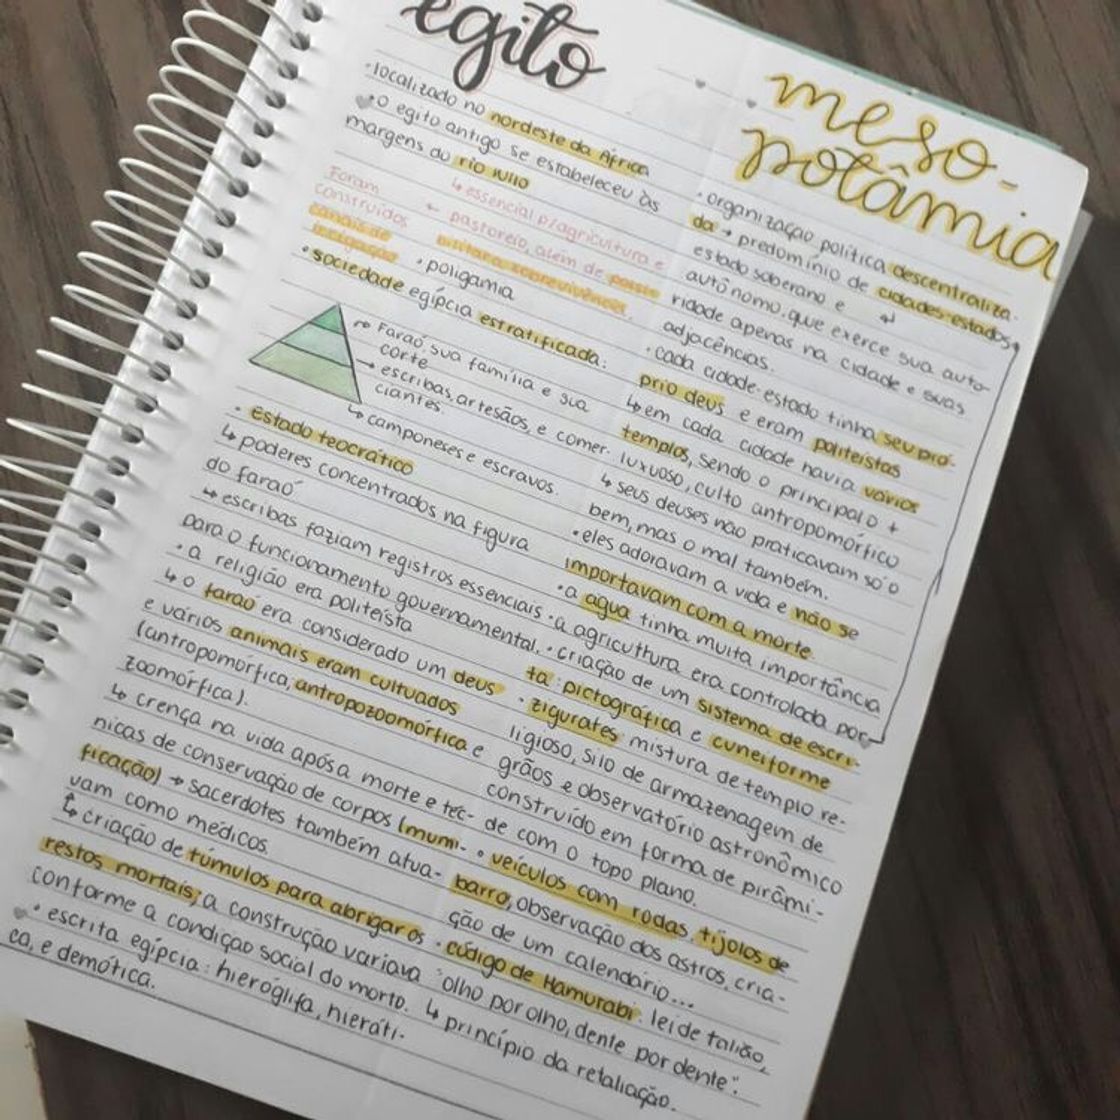 egito
• localizado no nordeste da África
• O egito antigo se estabeleceu às
margens do rio Nilo
↳ essencial p/agricultura e
← pastoreio, além de possi-
bilitar a sobrevivência.
Foram
construídos
canais de
irrigação
• poligamia
• sociedade egípcia estratificada:
→ Faraó, sua família e sua
corte
→ escribas, artesãos, e comer-
ciantes.
↳ camponeses e escravos.
• estado teocrático
↳ poderes concentrados na figura
do faraó
↳ escribas faziam registros essenciais
para o funcionamento governamental.
• a religião era politeísta
↳ o faraó era considerado um deus
e vários animais eram cultuados
(antropomórfica, antropozoomórfica e
zoomórfica).
↳ crença na vida após a morte e téc-
nicas de conservação de corpos (mumi-
ficação) → sacerdotes também atua-
vam como médicos
↳ criação de túmulos para abrigar os
restos mortais; a construção variava
conforme a condição social do morto.
• escrita egípcia: hieróglifa, hieráti-
ca, e demótica.
meso-
potâmia
• organização política descentraliza-
da → predomínio de cidades-estados,
estado soberano e ↵
autônomo. que exerce sua auto-
ridade apenas na cidade e suas
adjacências.
• cada cidade-estado tinha seu pró-
prio deus e eram politeístas
↳ em cada cidade havia vários
templos, sendo o principal o +
luxuoso, culto antropomórfico
↳ seus deuses não praticavam só o
bem, mas o mal também.
• eles adoravam a vida e não se
importavam com a morte
• a agua tinha muita importância
• a agricuttura era controlada por
• criação de um sistema de escri-
ta: pictográfica e cuneiforme
• zigurates: mistura de templo re-
ligioso, silo de armazenagem de
grãos e observatório astronômico
construído em forma de pirâmi-
de com o topo plano.
• veículos com rodas, tijolos de
barro, observação dos astros, cria-
ção de um calendário...
• código de Hamurabi: lei de talião,
"olho por olho, dente por dente".
↳ princípio da retaliação.